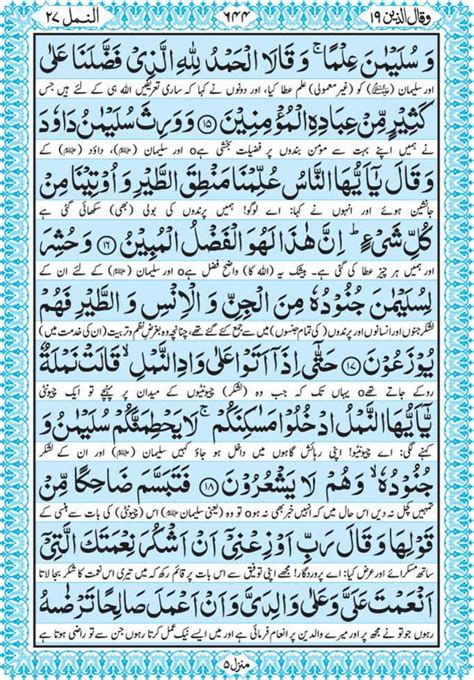 وقال الذین ۱۹ ۶۴۴ النمل ۲۷
وَ سُلَیْمٰنَ عِلْمًا ۚ وَ قَالَا الْحَمْدُ لِلّٰهِ الَّذِیْ فَضَّلَنَا عَلٰی
اور سلیمان (علیہ السلام) کو (غیر معمولی) علم عطا کیا، اور دونوں نے کہا کہ ساری تعریفیں اللہ ہی کے لئے ہیں جس
كَثِیْرٍ مِّنْ عِبَادِهِ الْمُؤْمِنِیْنَ ﴿۱۵﴾ وَوَرِثَ سُلَیْمٰنُ دَاوٗدَ
نے ہمیں اپنے بہت سے مؤمن بندوں پر فضیلت بخشی ہے o اور سلیمان (علیہ السلام)، داؤد (علیہ السلام) کے
وَ قَالَ یٰۤاَیُّهَا النَّاسُ عُلِّمْنَا مَنْطِقَ الطَّیْرِ وَ اُوْتِیْنَا مِنْ
جانشین ہوئے اور انہوں نے کہا: اے لوگو! ہمیں پرندوں کی بولی (بھی) سکھائی گئی ہے
كُلِّ شَیْءٍ ؕ اِنَّ هٰذَا لَهُوَ الْفَضْلُ الْمُبِیْنُ ﴿۱۶﴾ وَ حُشِرَ
اور ہمیں ہر چیز عطا کی گئی ہے۔ بیشک یہ (اللہ کا) واضح فضل ہے o اور سلیمان (علیہ السلام) کے لئے ان کے
لِسُلَیْمٰنَ جُنُوْدُهٗ مِنَ الْجِنِّ وَ الْاِنْسِ وَ الطَّیْرِ فَهُمْ
لشکر جنوں اور انسانوں اور پرندوں (کی تمام جنسوں) میں سے جمع کئے گئے تھے، چنانچہ وہ بغرض نظم و تربیت (ان کی خدمت میں)
یُوْزَعُوْنَ ﴿۱۷﴾ حَتّٰۤی اِذَاۤ اَتَوْا عَلٰی وَادِ النَّمْلِ ۙ قَالَتْ نَمْلَةٌ
روکے جاتے تھے o یہاں تک کہ جب وہ (لشکر) چیونٹیوں کے میدان پر پہنچے تو ایک چیونٹی
یّٰۤاَیُّهَا النَّمْلُ ادْخُلُوْا مَسٰكِنَكُمْ ۚ لَا یَحْطِمَنَّكُمْ سُلَیْمٰنُ وَ
کہنے لگی: اے چیونٹیو! اپنی رہائش گاہوں میں داخل ہو جاؤ کہیں سلیمان (علیہ السلام) اور ان کے لشکر
جُنُوْدُهٗ ۙ وَ هُمْ لَا یَشْعُرُوْنَ ﴿۱۸﴾ فَتَبَسَّمَ ضَاحِكًا مِّنْ
تمہیں کچل نہ دیں اس حال میں کہ انہیں خبر بھی نہ ہو o تو وہ (یعنی سلیمان علیہ السلام) اس (چیونٹی) کی بات سے ہنسی کے
قَوْلِهَا وَ قَالَ رَبِّ اَوْزِعْنِیْۤ اَنْ اَشْكُرَ نِعْمَتَكَ الَّتِیْۤ
ساتھ مسکرائے اور عرض کیا: اے پروردگار! مجھے اپنی توفیق سے اس بات پر قائم رکھ کہ میں تیری اس نعمت کا شکر بجا لاتا
اَنْعَمْتَ عَلَیَّ وَ عَلٰی وَالِدَیَّ وَ اَنْ اَعْمَلَ صَالِحًا تَرْضٰىهُ
رہوں جو تو نے مجھ پر اور میرے والدین پر انعام فرمائی ہے اور میں ایسے نیک عمل کرتا رہوں جن سے تو راضی ہوتا ہے
منزل ۵